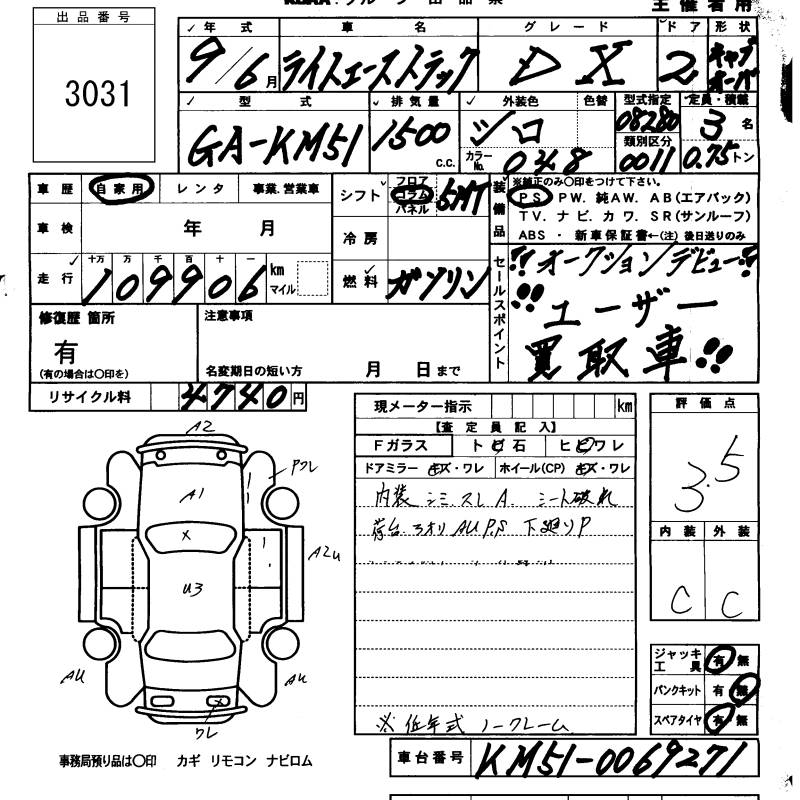 出品番号
3031
年式 車名 グレード ドア 形状
9/6月 ライトエーストラック DX 2 キャブオーバ
型式 排気量 外装色 色替 型式指定 定員・積載
GA-KM51 1500 c.c. シロ 08280 3名
カラーNo. 048 類別区分 0011 0.75トン
車歴 自家用 レンタ 事業.営業車
シフト フロア コラム パネル 5MT
車検 年 月
冷房
走行 十万 万 千 百 十 一
109906 km マイル
燃料 ガソリン
装備品
※純正のみ○印をつけて下さい。
PS PW. 純AW. AB(エアバック)
TV. ナビ. カワ. SR(サンルーフ)
ABS ・ 新車保証書←(注) 後日送りのみ
セールスポイント
!! オークションデビュー!!
!! ユーザー
買取車!!
修復歴 箇所
有
(有の場合は○印を)
注意事項
名変期日の短い方 月 日まで
リサイクル料 4740円
現メーター指示 km
【査定員記入】
Fガラス トビ石 ヒビワレ
ドアミラー キズ・ワレ ホイール(CP) キズ・ワレ
内装 シミ スレ A. シート破れ
荷台 ヲオリ AU P.S 下廻りP
※低年式 ノークレーム
評価点
3.5
内装 外装
C C
ジャッキ工具 有 無
パンクキット 有 無
スペアタイヤ 有 無
A2
Pワレ
A1
X
A2U
U3
AU
AU
X
ワレ
事務局預り品は○印 カギ リモコン ナビロム
車台番号 KM51-0069271